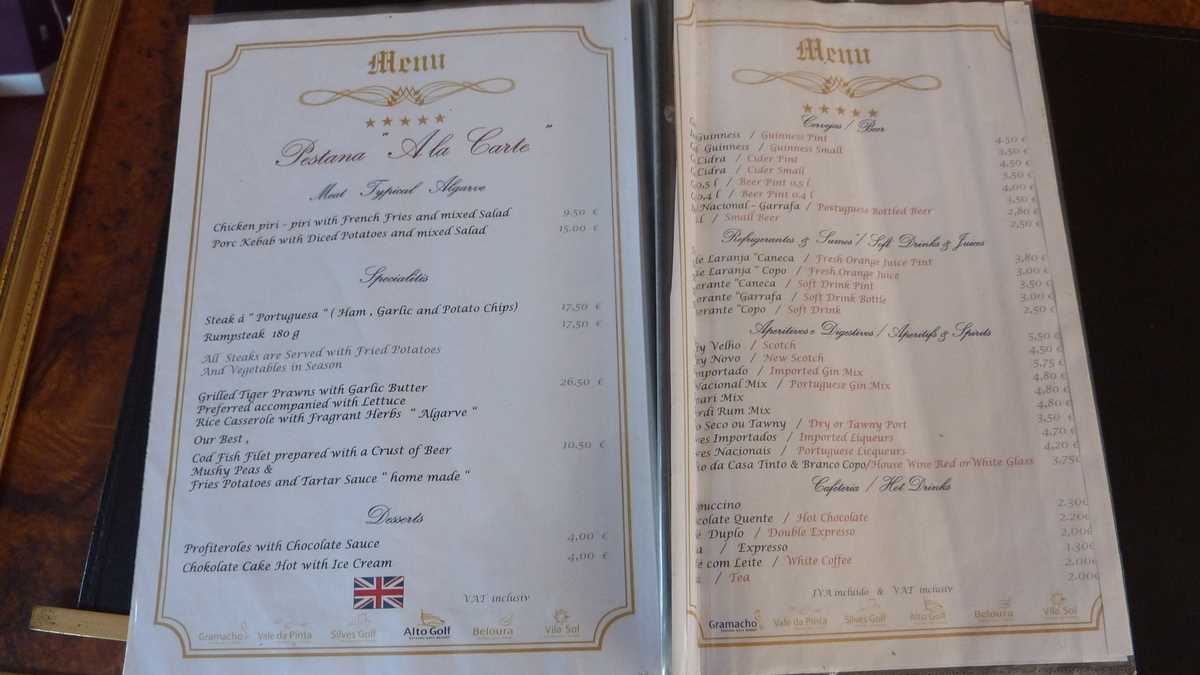 Menu
Pestana "A la Carte"
Meat Typical Algarve
Chicken piri - piri with French Fries and mixed Salad 9.50 €
Porc Kebab with Diced Potatoes and mixed Salad 15.00 €
Specialitis
Steak á " Portuguesa " ( Ham , Garlic and Potato Chips) 17,50 €
Rumpsteak 180 g 17,50 €
All Steaks are Served with Fried Potatoes
And Vegetables in Season
Grilled Tiger Prawns with Garlic Butter 26.50 €
Preferred accompanied with Lettuce
Rice Casserole with Fragrant Herbs " Algarve "
Our Best ,
Cod Fish Filet prepared with a Crust of Beer 10.50 €
Mushy Peas &
Fries Potatoes and Tartar Sauce " home made "
Desserts
Profiteroles with Chocolate Sauce 4,00 €
Chokolate Cake Hot with Ice Cream 4,00 €
VAT inclusiv
Gramacho Vale da Pinta Silves Golf Alto Golf Beloura Vila Sol
Menu
Cervejas / Beer
Guinness / Guinness Pint 4.50 €
Guinness / Guinness Small 3.50 €
Cidra / Cider Pint 4.50 €
Cidra / Cider Small 3.50 €
0,5 l / Beer Pint 0.5 l 4,00 €
0,4 l / Beer Pint 0.4 l 3,50 €
Nacional - Garrafa / Postuguese Bottled Beer 2,80 €
l / Small Beer 2,50 €
Refrigerantes & Sumos / Soft Drinks & Juices
de Laranja "Caneca / Fresh Orange Juice Pint 3,80 €
de Laranja " Copo / Fresh Orange Juice 3,00 €
erante "Caneca / Soft Drink Pint 3.50 €
erante "Garrafa / Soft Drink Bottle 3,00 €
erante "Copo / Soft Drink 2,50 €
Aperitivos e Digestivos / Aperitifs & Spirits
y Velho / Scotch 5,50 €
y Novo / New Scotch 4,50 €
mportado / Imported Gin Mix 5,75 €
acional Mix / Portuguese Gin Mix 4,80 €
ari Mix 4,80 €
rdi Rum Mix 4,80 €
o Seco ou Tawny / Dry or Tawny Port 3,50 €
es Importados / Imported Liqueurs 4,70 €
es Nacionais / Portuguese Licqueurs 4,20 €
o da Casa Tinto & Branco Copo/House Wine Red or White Glass 3,75€
Cafeteria / Hot Drinks
puccino 2.30€
colate Quente / Hot Chocolate 2.20€
Duplo / Double Expresso 2,00€
a / Expresso 1.30€
com Leite / White Coffee 2.00€
/ Tea 2.00€
IVA incluido & VAT inclusiv
Gramacho Vale da Pinta Silves Golf Alto Golf Beloura Vila Sol